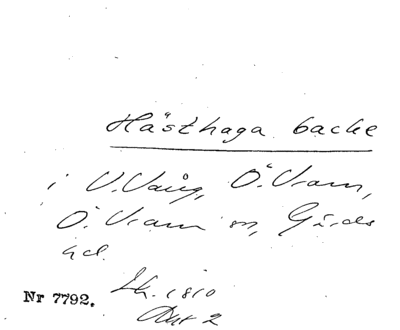 Hästhaga backe
i V.Vång, Ö.Vram,
Ö.Vram sn, Gärds
hd.
Nr 7792. Lk. 1810
Akt 2